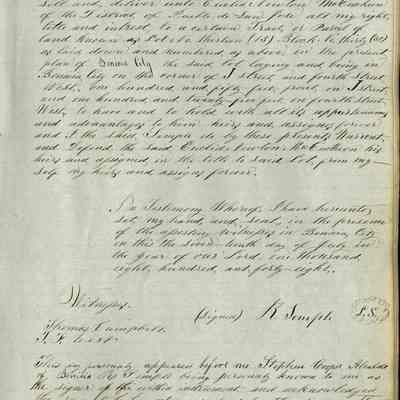 sell and, deliver unto
of the District of Pueblo de San José all my right,
title and interest to a certain Tract, or Parcel of
land known as Lot No. thirteen (13) Block
as laid down and numbered, as above, in the present
plan of Benicia City the said lot laying and being in
Benicia City on the corner of I street, and fourth Street
West, one hundred, and fifty feet, front, on I street,
and one hundred and twenty five feet, on fourth Street,
West, to have and to hold with all its appurtenances
and advantages to him heirs and assigns forever
and I the said Semple do by these, presents, Warrent,
and Defend the said
heirs and assigns, in the title to said Lot, from my-
self my heirs, and assigns forever.
In Testimony Whereof, I have hereunto,
set, my hand, and, seal, in the presence
of the witness, in Benicia City
on this the day of July in
the year of our Lord, one thousand,
eight, hundred, and, forty-eight.
Witness,
(signed) R Semple L.S.
Thomas Campbell
This day personaly appeared before me, Stephen Cooper Alcalde
of Benicia R. Semple being personaly known to me as
the signer of the within instrument and acknowledged